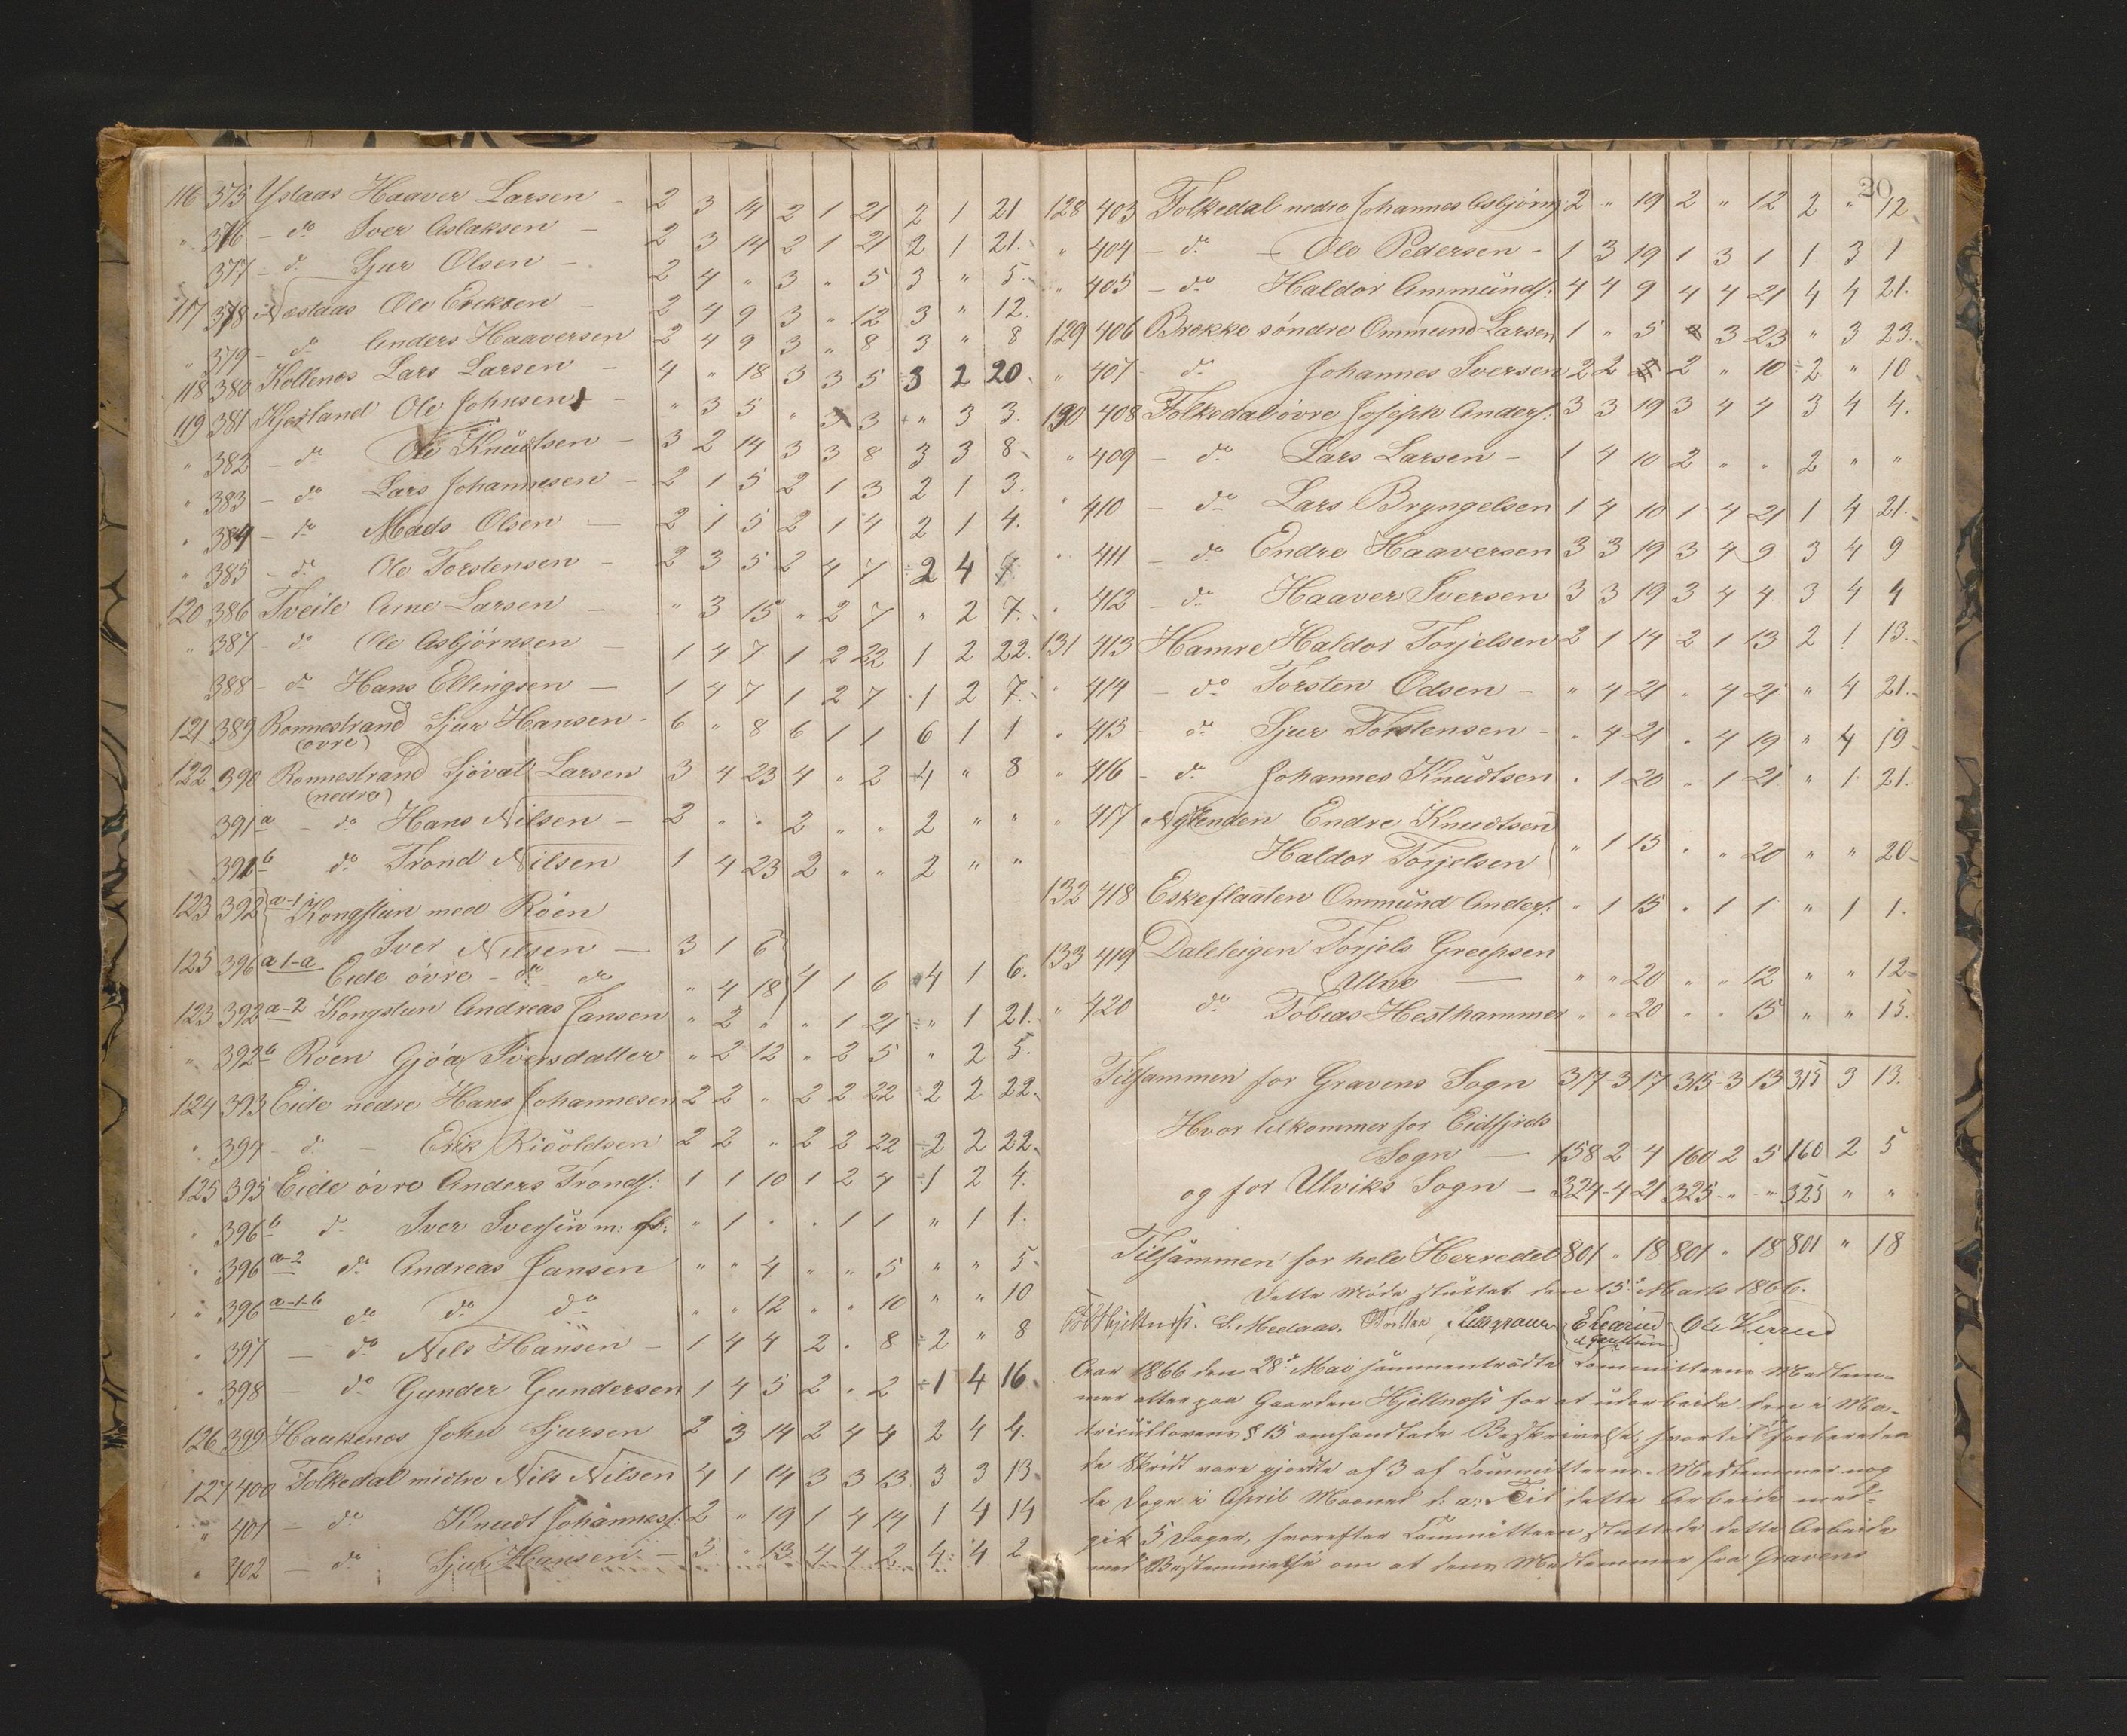 116 375 Yslaas Haaver Larsen - 2 3 14 2 1 21 2 1 21
" 376 - do Iver Aslaksen - 2 3 14 2 1 21 2 1 21.
377 - do Sjur Olsen - 2 4 " 3 " 5 3 " 5.
117 378 Næstaas Ole Eriksen - 2 4 9 3 " 12 3 " 12.
" 379 - do Anders Haaversen 2 4 9 3 " 8 3 " 8
118 380 Kollenes Lars Larsen - 4 " 18 3 3 5 ÷ 3 2 20.
119 381 Kjerland Ole Johnsen - " 3 5 " 3 3 " 3 3.
" 382 - do Ole Knudtsen - 3 2 14 3 3 8 3 3 8.
" 383 - do Lars Johannesen - 2 1 5 2 1 3 2 1 3.
" 384 - do Mads Olsen - 2 1 5 2 1 4 2 1 4.
" 385 - do Ole Torstensen - 2 3 5 2 4 7 ÷ 2 4 7
120 386 Tveite Arne Larsen - " 3 15 " 2 7 " 2 7.
" 387 - do Ole Asbjörnsen - 1 4 7 1 2 22 1 2 22.
388 - do Hans Ellingsen - 1 4 7 1 2 7 1 2 7.
121 389 Ronnestrand Sjur Hansen - 6 " 8 6 1 1 6 1 1
(øvre)
122 390 Ronnestrand Sjøvat Larsen 3 4 23 4 " 2 4 " 8
(nedre)
391a - do Hans Nilsen - 2 " " 2 " " 2 " "
391b do Trond Nilsen 1 4 23 2 " " 2 " "
123 392 a-1 Kongstun med Röen
Iver Nilsen - 3 1 6
125 396 a 1-a Eide övre - do do " 4 18 4 1 6 4 1 6.
123 392 a-2 Kongstun Andreas Jansen " 2 " " 1 21 ÷ " 1 21.
" 392b Röen Gjöa Iversdatter " 2 12 " 2 5 " 2 5.
124 393 Eide nedre Hans Johannesen 2 2 " 2 2 22 ÷ 2 2 22.
" 394 - do - Erik Ricoldsen 2 2 " 2 2 22 ÷ 2 2 22.
125 395 Eide övre Anders Tronds: 1 1 10 1 2 4 ÷ 1 2 4.
" 396b do Iver Iversen m: fl: " 1 " " 1 1 " 1 1.
" 396 a-2 do Andreas Jansen " " 4 " " 5 " " 5.
" 396 a-1-b do do do " " 12 " " 10 " " 10
" 397 - do Nels Hansen - 1 4 4 2 " 8 ÷ 2 " 8
" 398 - do Gunder Gundersen 1 4 5 2 " 2 ÷ 1 4 16.
126 399 Haukenes John Sjursen 2 3 14 2 4 4 2 4 4.
127 400 Folkedal midtre Nils Nilsen 4 1 14 3 3 13 3 3 13.
" 401 - do Knudt Johannes: 2 " 19 1 4 14 1 4 14
" 402 - do Sjur Hansen - 5 " 13 4 4 2 4 4 2
20
128 403 Folkedal nedre Johannes Asbjörns 2 " 19 2 " 12 2 " 12.
" 404 - do - Ole Pedersen - 1 3 19 1 3 1 1 3 1
" 405 - do Haldor Ammunds: 4 4 9 4 4 21 4 4 21.
129 406 Brekke söndre Ommund Larsen 1 " 5 " 3 23 " 3 23.
" 407 - do Johannes Iversen 2 2 " 2 " 10 ÷ 2 " 10.
130 408 Folkedal övre Joseph Anders: 3 3 19 3 4 4 3 4 4.
" 409 - do Lars Larsen - 1 4 10 2 " " 2 " "
" 410 - do Lars Bryngelsen 1 4 10 1 4 21 1 4 21.
" 411 - do Endre Haaversen 3 3 19 3 4 9 3 4 9
" 412 - do Haaver Iversen 3 3 19 3 4 4 3 4 4
131 413 Hamre Haldor Torjelsen 2 1 14 2 1 13 2 1 13.
" 414 - do Torsten Odsen - " 4 21 " 4 21 " 4 21.
" 415 - do Sjur Torstensen - " 4 21 " 4 19 " 4 19
" 416 - do Johannes Knudtsen " 1 20 " 1 21 " 1 21.
" 417 Nylænden Endre Knudtsen
Haldor Torjelsen " 1 15 " " 20 " " 20
132 418 Eskeflaaten Ommund Anders: " 1 15 " 1 1 " 1 1.
133 419 Daleteigen Torjels Greipsen
Utne - " " 20 " " 12 " " 12
" 420 do Tobias Hesthammer " " 20 " " 15 " " 15.
Tilsammen for Gravens Sogn 317-3 17 315-3 13 315 3 13.
Hvortil kommer for Eidfjords
Sogn - 158 2 4 160 2 5 160 2 5
og for Ulviks Sogn - 324-4 21 325 " " 325 " "
Tilsammen for hele Herredet 801 " 18 801 " 18 801 " 18
Dette Møde sluttet den 15de Marts 1866.
Hjeltnes. S. Medaas. E Learind Ole Vereid
Aar 1866 den 28de Mai sammentraadte Committeens Medlem-
mer atter paa Gaarden Hjeltnes for at udarbeide den i Ma-
triculLovens § 15 omhandlede Beskrivelse, hvortil forbereden
de Skridt vare gjordte af 3 af Committeens Medlemmer nog
le Dage i April Maaned d: a: Til dette Arbeide med-
gik 5 Dager, hvorefter Committeen sluttede dette Arbeide
med Bestemmelse om at dens Medlemmer fra Gravens